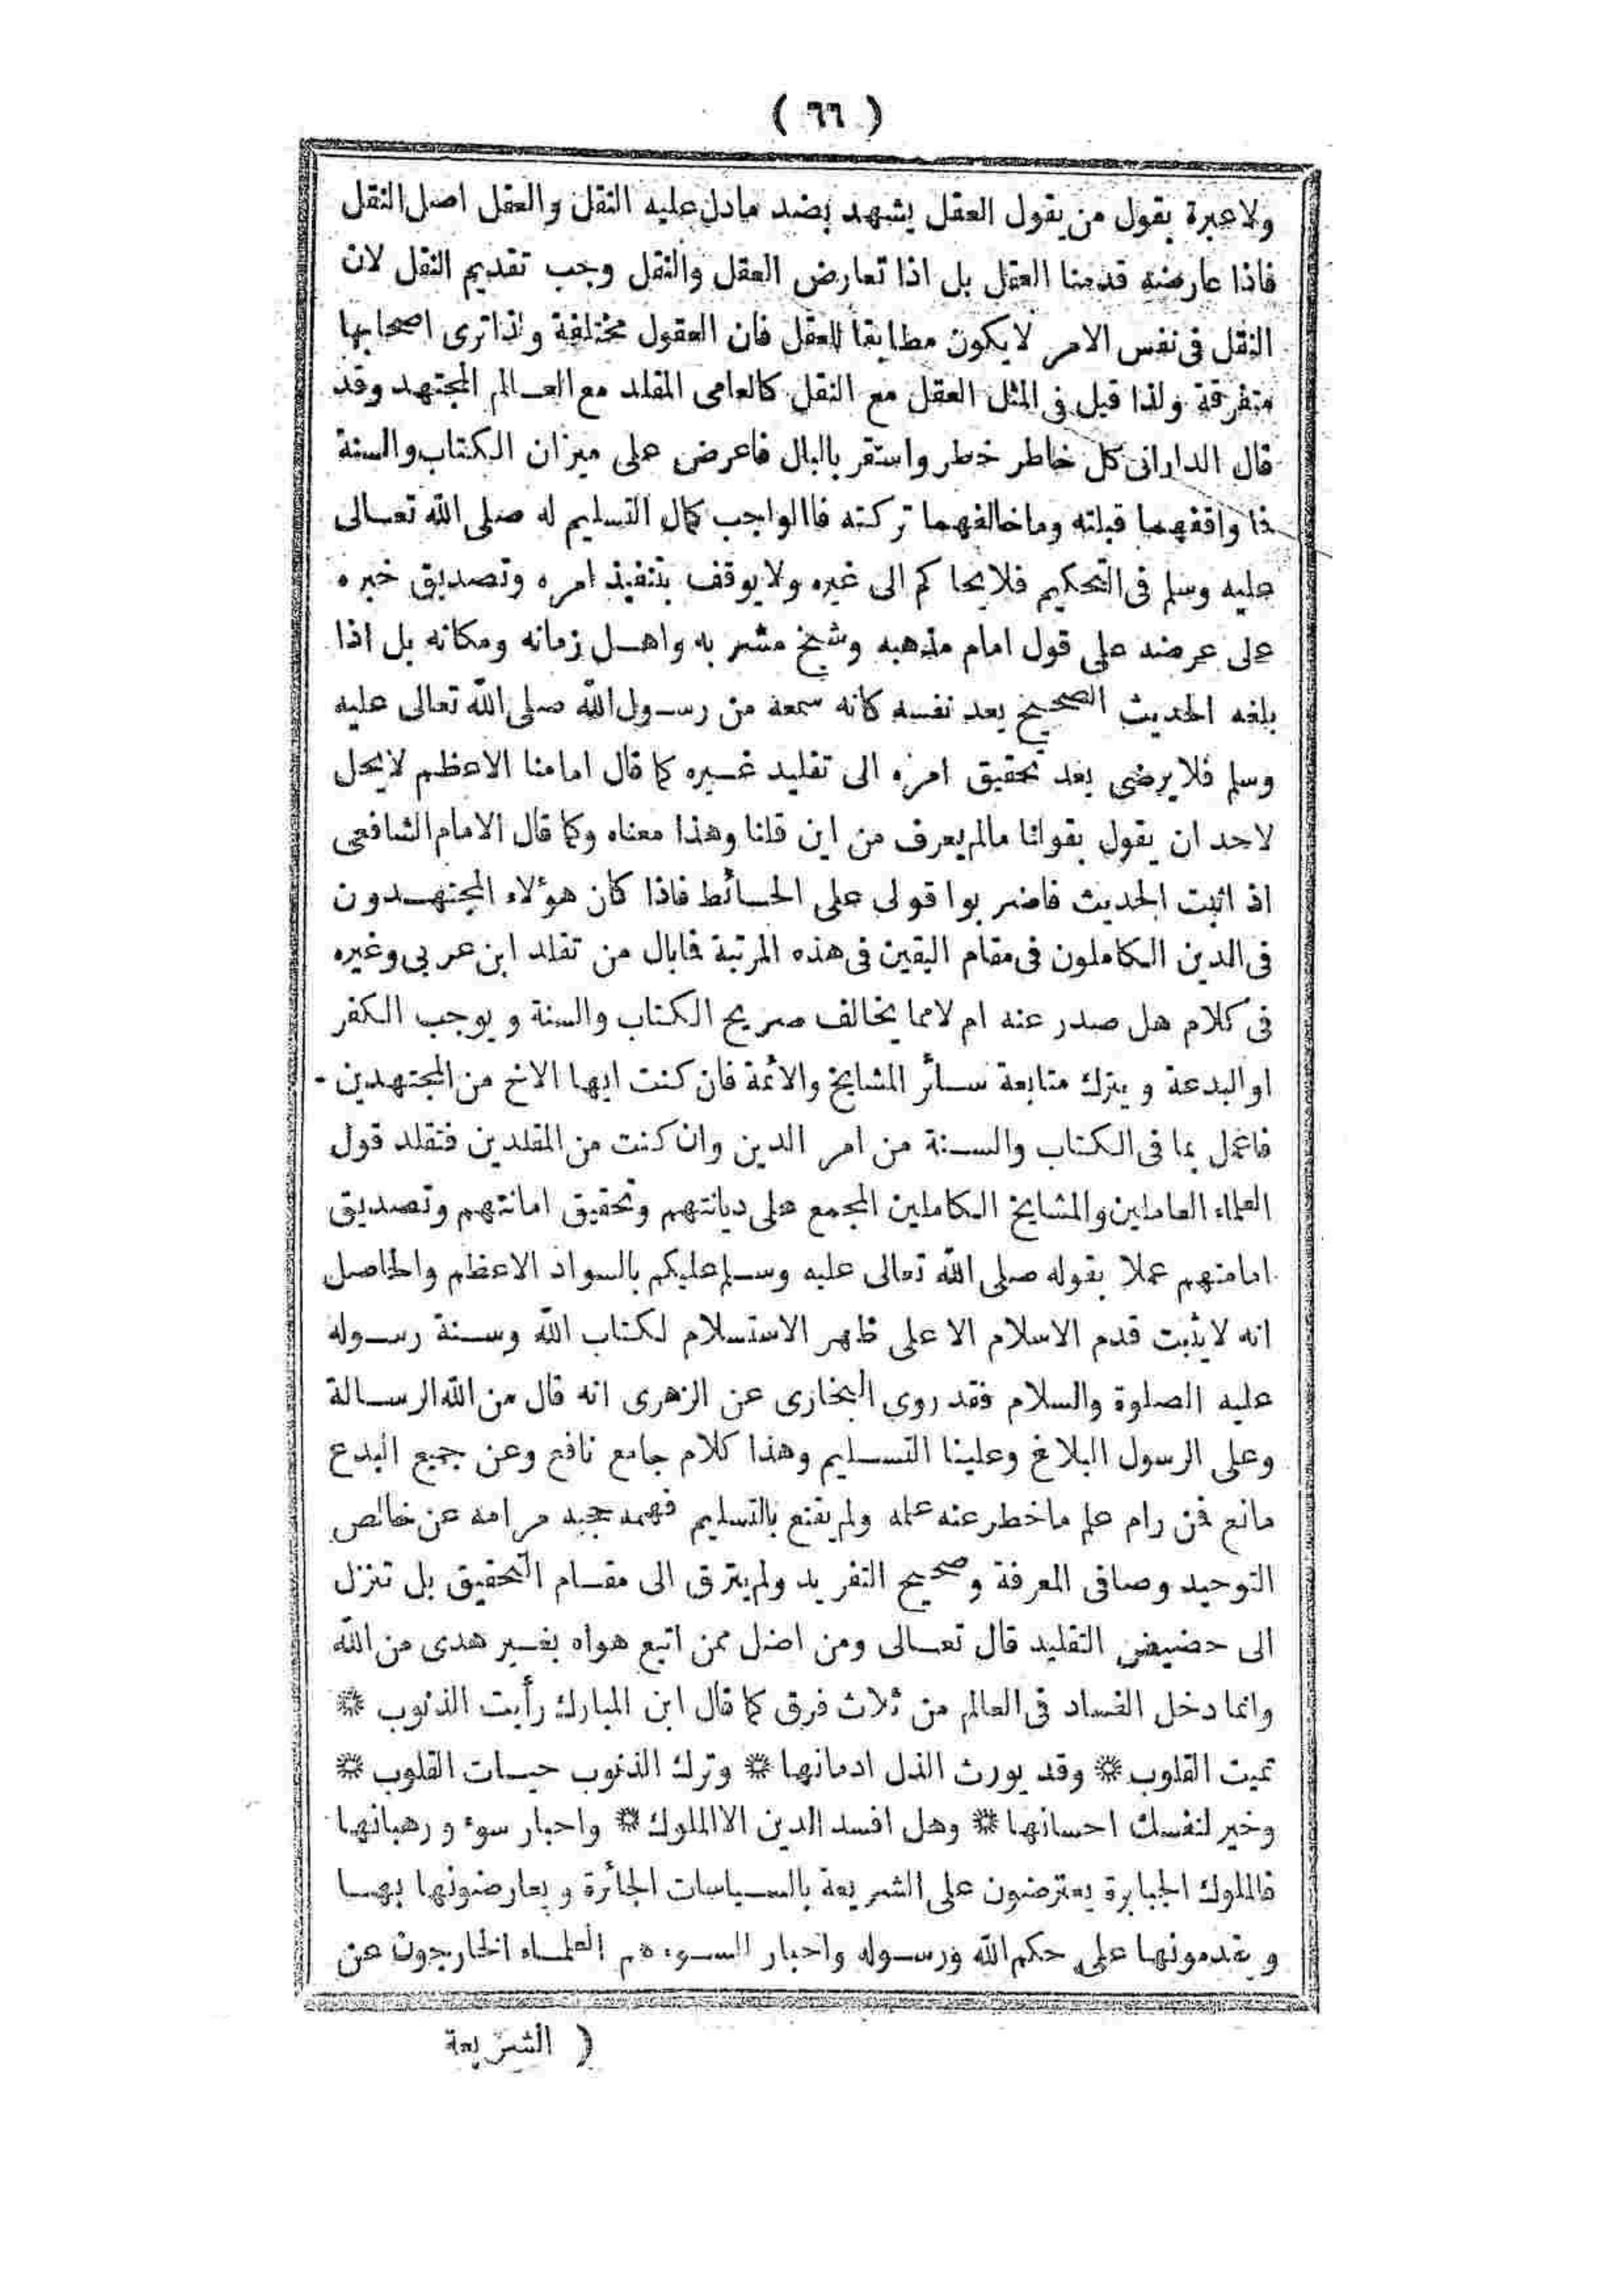 ( ٦٦ )
ولاعبرة بقول من يقول العقل يشهد بضد مادل عليه النقل والعقل اصل النقل
فاذا عارضه قدمنا العقل بل اذا تعارض العقل والنقل وجب تقديم النقل لان
النقل فى نفس الامر لايكون مطابقا للعقل فان العقول مختلفة ولذا ترى اصحابها
متفرقة ولذا قيل فى المثل العقل مع النقل كالعامى المقلد مع العـالم المجتهد وقد
قال الدارانى كل خاطر خطر واستقر بالبال فاعرض على ميزان الكتاب والسنة
فا واقفهما قبلته وماخالفهما تركته فاالواجب كمال التسليم له صلى الله تعـالى
عليه وسلم فى التحكيم فلايحاكم الى غيره ولايوقف بتنفيذ امره وتصديق خبره
على عرضه على قول امام مذهبه وشيخ مشربه واهـل زمانه ومكانه بل اذا
بلغه الحديث الصحيح يعد نفسه كانه سمعه من رسـول الله صلى الله تعالى عليه
وسلم فلايرضى بعد تحقيق امره الى تقليد غـيره كما قال امامنا الاعظم لايحل
لاحد ان يقول بقولنا مالم يعرف من اين قلنا وهذا معناه وكما قال الامام الشافعى
اذ اثبت الحديث فاضربوا قولى على الحـائط فاذا كان هؤلاء المجتهـدون
فى الدين الكاملون فى مقام اليقين فى هذه المرتبة فابال من تقلد ابن عربى وغيره
فى كلام هل صدر عنه ام لامما يخالف صريح الكتاب والسنة ويوجب الكفر
او البدعة ويترك متابعة سـائر المشايخ والائمة فان كنت ايها الاخ من المجتهدين
فاعمل بما فى الكتاب والسـنة من امر الدين وان كنت من المقلدين فتقلد قول
العلماء العاملين والمشايخ الكاملين المجمع على ديانتهم وتحقيق امانتهم وتصديق
امامتهم عملا بقوله صلى الله تعالى عليه وسـلم عليكم بالسواد الاعظم والحاصل
انه لايثبت قدم الاسلام الا على ظهر الاستسلام لكتاب الله وسـنة رسـوله
عليه الصلوة والسلام فقد روى البخارى عن الزهرى انه قال من الله الرسـالة
وعلى الرسول البلاغ وعلينا التسـليم وهذا كلام جامع نافع وعن جميع البدع
مانع فمن رام علم ماخطر عنه علمه ولم يقنع بالتسليم فهمه حجبه مرامه عن خالص
التوحيد وصافى المعرفة وصحيح التفريد ولم يترق الى مقـام التحقيق بل تنزل
الى حضيض التقليد قال تعـالى ومن اضل ممن اتبع هواه بغـير هدى من الله
وانما دخل الفساد فى العالم من ثلاث فرق كما قال ابن المبارك رأيت الذنوب *
تميت القلوب * وقد يورث الذل ادمانها * وترك الذنوب حيـات القلوب *
وخير لنفسك احسانها * وهل افسد الدين الاالملوك * واحبار سوء ورهبانها
فالملوك الجبابرة يعترضون على الشريعة بالسـياسات الجائرة ويعارضونها بهـا
ويقدمونها على حكم الله ورسـوله واحبار السـوء هم العلمـاء الخارجون عن
( الشريعة